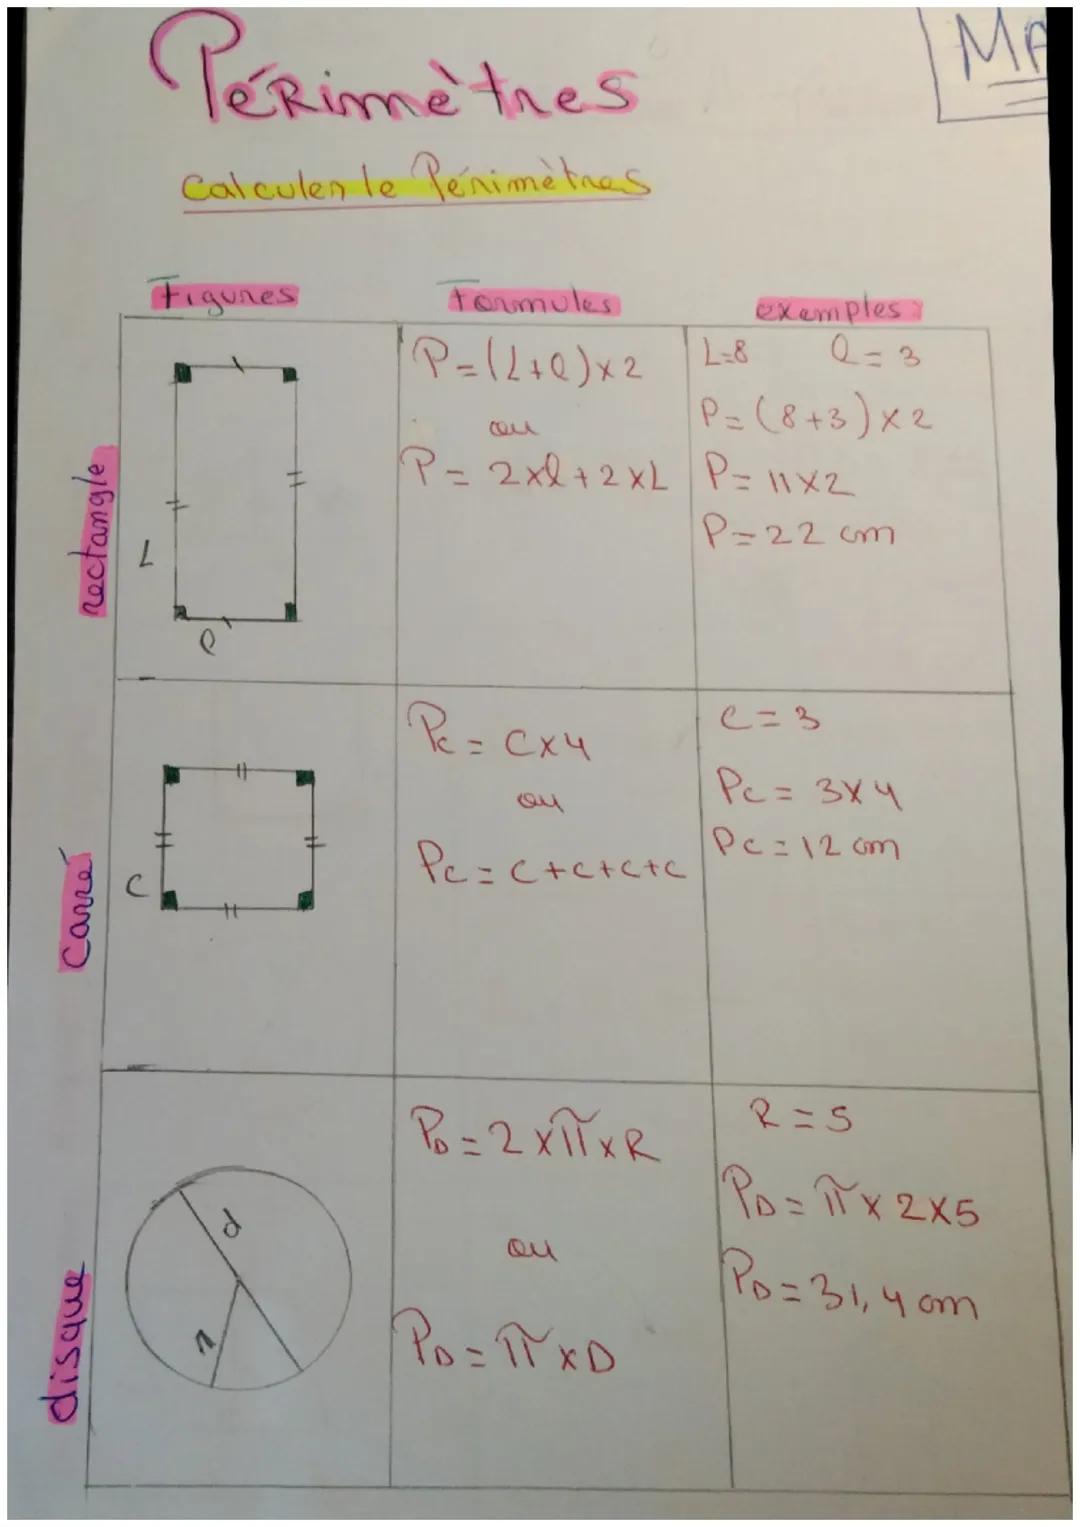 Périmètres
MA
calculer le Périmètres
Figures Formules exemples:
rectangle
L
l
P=(L+l)×2
ou
P= 2×l+2×L
L=8 l=3
P=(8+3)×2
P=11×2
P=22 cm
Carré
C
Pc= C×4
ou
Pc=C+C+C+C
C=3
Pc= 3×4
Pc=12 cm
disque
d
r
PD=2×π×R
ou
PD=π×D
R=5
PD=π×2×5
PD=31,4 cm